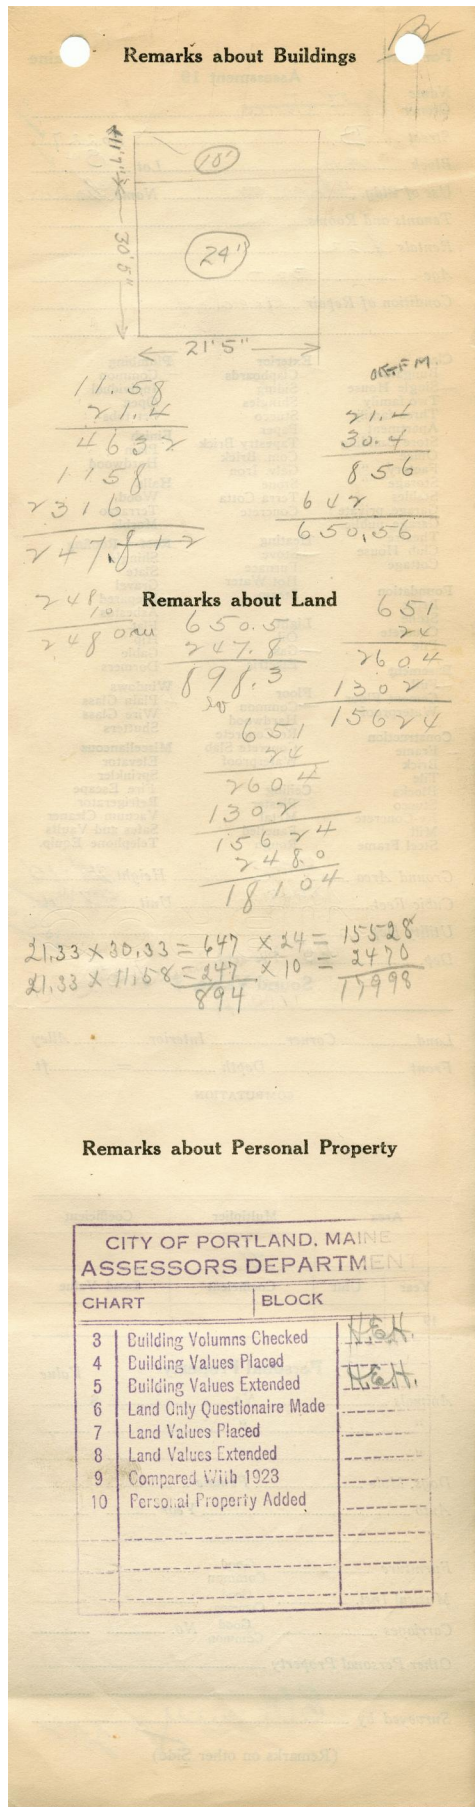 Remarks about Buildings
10'
11'7"
30'5"
24'
21'5"
11.58
21.4
4632
1158
2316
247.812
21.4
30.4
856
642
650.56
Remarks about Land
248
10
2480
650.5
247.8
898.3
651
24
2604
1302
15624
651
24
2604
1302
15624
2480
18104
21.33 x 30.33 = 647 x 24 = 15528
21.33 x 11.58 = 247 x 10 = 2470
894 17998
Remarks about Personal Property
CITY OF PORTLAND, MAINE
ASSESSORS DEPARTMENT
CHART BLOCK
3 Building Volumns Checked H.E.H.
4 Building Values Placed
5 Building Values Extended H.E.H.
6 Land Only Questionaire Made
7 Land Values Placed
8 Land Values Extended
9 Compared With 1923
10 Personal Property Added